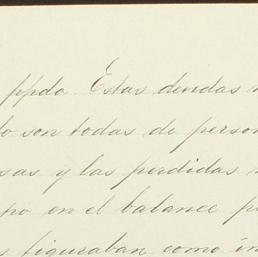 ppdo. Estas deudas
lo son todas de person
sas y las perdidas
po en el balance p
figuraban como in